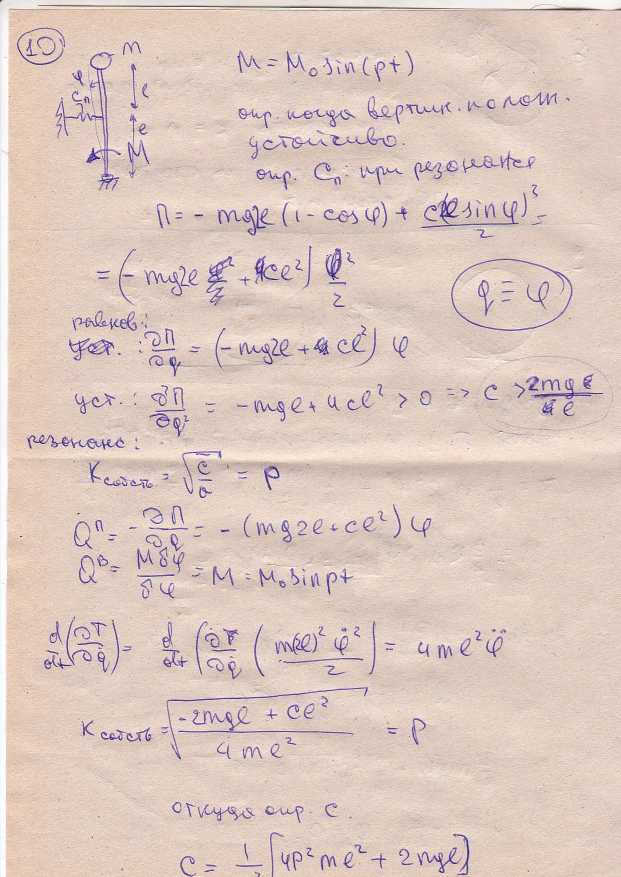 10
m
M = M₀ sin(pt)
φ
Cп
l
опр. когда вертик. полож.
e
устойчиво.
M
опр. Cп: при резонансе
П = - mg2e (1 - cosφ) + c(e sinφ)² / 2 =
= (- mg2e + ce²) φ² / 2
q ≡ φ
равнов:
уст. : ∂П/∂q = (- mg2e + ce²) φ
уст. : ∂²П/∂q² = - mge + 4ce² > 0 => c > 2mg / e
резонанс:
Kсобств = √(c/a) = p
Qᴨ = - ∂П/∂q = - (mg2e + ce²) φ
Qᴮ = Mδφ/δφ = M = M₀ sin pt
d/dt (∂T/∂q̇) = d/dt (∂T/∂q̇ (m(2e)² φ̈²/2) = 4me²φ̈
Kсобств = √((-2mgl + Ce²) / 4me²) = p
откуда опр. c.
C = 1/ [4p²me² + 2mgl]